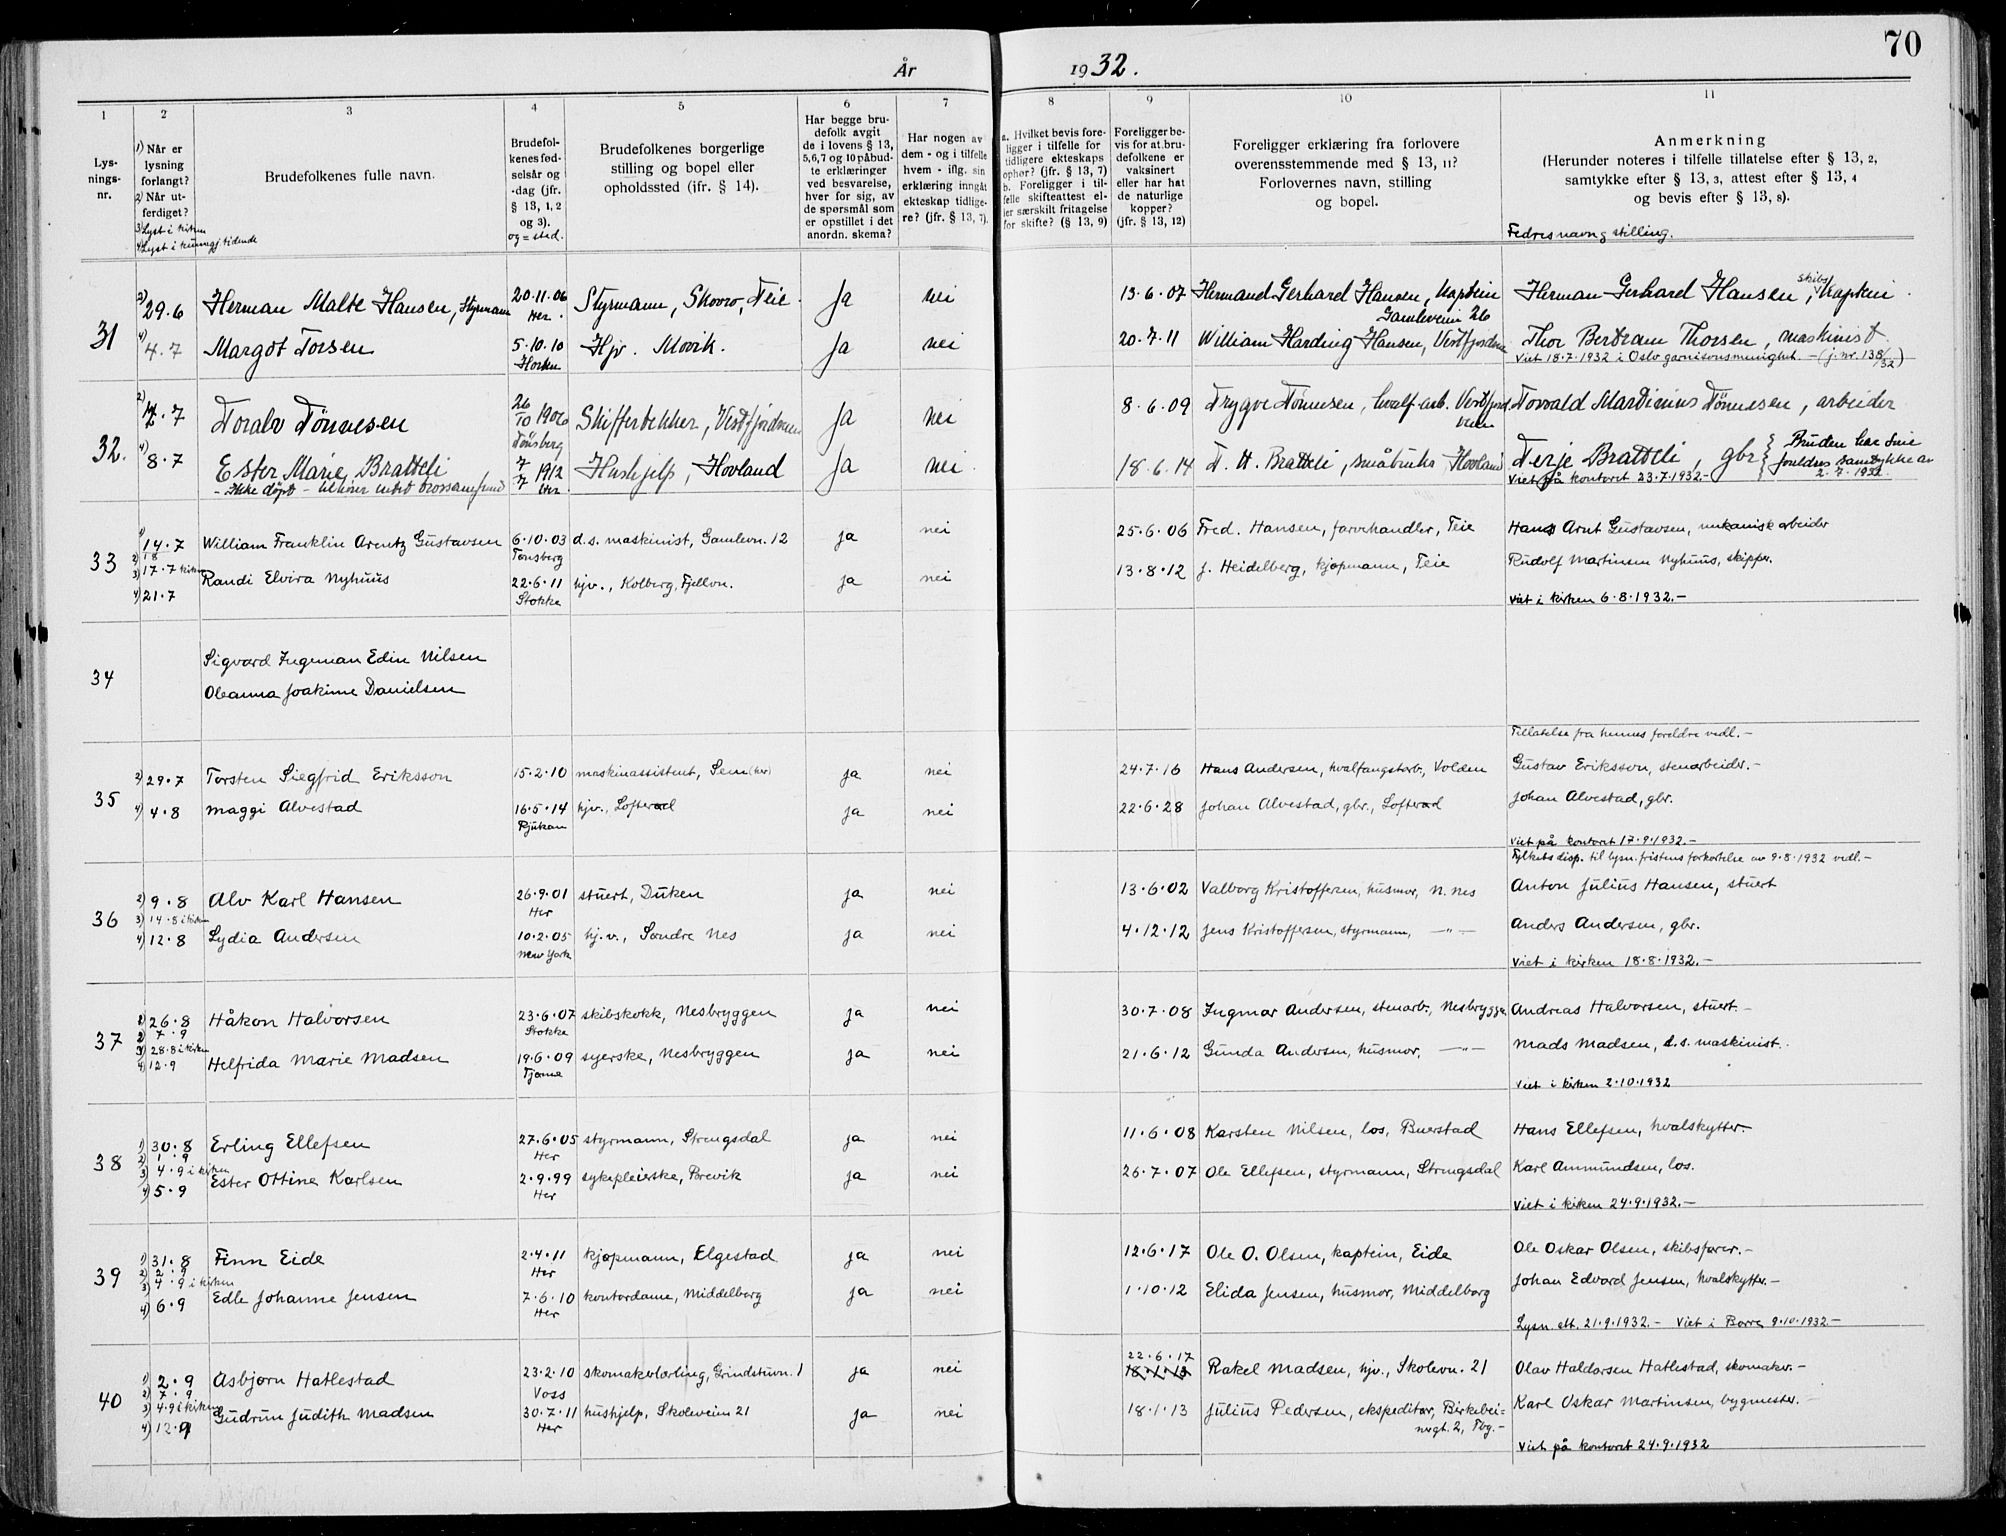 70
År 1932.
1 2 3 4 5 6 7 8 9 10 11
Lys-
nings-
nr.
1) Når er
lysning
forlangt?
2) Når ut-
ferdiget?
3) Lyst i kirken
4) Lyst i kunngj. tidende
Brudefolkenes fulle navn.
Brudefol-
kenes fød-
selsår og
-dag (jfr.
§ 13, 1, 2
og 3).
og = sted.
Brudefolkenes borgerlige
stilling og bopel eller
opholdssted (jfr. § 14).
Har begge bru-
defolk avgit
de i lovens § 13,
5, 6, 7 og 10 påbud-
te erklæringer
ved besvarelse,
hver for sig, av
de spørsmål som
er opstillet i det
anordn. skema?
Har nogen av
dem - og i tilfelle
hvem - iflg. sin
erklæring inngått
ekteskap tidlige-
re? (jfr. § 13, 7).
a. Hvilket bevis fore-
ligger i tilfelle for
tidligere ekteskaps
ophør? (jfr. § 13, 7)
b. Foreligger i til-
felle skifteattest el-
ler særskilt fritagelse
for skifte? (§ 13, 9)
Foreligger be-
vis for at bru-
defolkene er
vaksinert
eller har hat
de naturlige
kopper?
(jfr. § 13, 12)
Foreligger erklæring fra forlovere
overensstemmende med § 13, 11?
Forlovernes navn, stilling
og bopel.
Anmerkning
(Herunder noteres i tilfelle tillatelse efter § 13, 2,
samtykke efter § 13, 3, attest efter § 13, 4
og bevis efter § 13, 8).
Fedres navn og stilling.
31 2) 29.6 Herman Malte Hansen, Styrmann 20.11.06 Her. Styrmann, Skovro, Teie. Ja nei 13.6.07 Hermand Gerhard Hansen, Kaptein Gamleveien 26 Herman Gerhard Hansen, skibs Kaptein.
4) 4.7 Margot Torsen 5.10.10 Horten Hjv. Movik. Ja nei 20.7.11 William Harding Hansen, Vestfjordveien Thor Bertram Thorsen, maskinist.
Viet 18.7.1932 i Oslo garnisonsmenighet. - (j. nr. 138/32)
32. 2) 7.7 Toralv Tønnesen 26/10 1906 Tønsberg Skiffertekker, Vestfjordveien Ja nei 8.6.09 Trygve Tønnesen, hvalf. arb. Vestfjord veien Torvald Mardinius Tønnesen, arbeider
4) 8.7 Ester Marie Bratteli 7/7 1912 Her Hushjelp, Hovland Ja nei. 18.6.14 T. H. Bratteli, småbruker Hovland Terje Bratteli, gbr. { Bruden har sine foreldres samtykke av 2.7.1932
- Ikke døpt - tilhører intet trossamfund Viet på kontoret 23.7.1932. -
33 1) 14.7 William Franklin Arentz Gustavsen 6.10.03 Tønsberg d.s. maskinist, Gamlevn. 12 ja nei 25.6.06 Fred. Hansen, farvehandler, Teie Hans Arnt Gustavsen, mekanisk arbeider
2) 18
3) 17.7 kirken Randi Elvira Nyhuus 22.6.11 Stokke hjv., Kolberg, Fjellvn. ja nei 13.8.12 J. Heidelberg, kjøpmann, Teie Rudolf Martinsen Nyhuus, skipper.
4) 21.7 Viet i kirken 6.8.1932. -
34 Sigvard Ingeman Edin Nilsen
Oleanna Joakime Danielsen
Tillatelse fra hennes foreldre vedl. -
35 2) 29.7 Torsten Siegfrid Eriksson 15.2.10 maskinassistent, Sem (her) ja nei 24.7.16 Hans Andersen, hvalfangstarb., Volden Gustav Eriksson, stenarbeider. -
4) 4.8 Maggi Alvestad 16.5.14 Rjukan hjv., Lofterød ja nei 22.6.28 Johan Alvestad, gbr., Lofterød Johan Alvestad, gbr.
Viet på kontoret 17.9.1932. -
Fylkets disp. til lysn. fristens forkortelse av 9.8.1932 vedl. -
36 2) 9.8 Alv Karl Hansen 26.9.01 Her stuert, Duken ja nei 13.6.02 Valborg Kristoffersen, husmor, N. Nes Anton Julius Hansen, stuert
3) 14.8 i kirken
4) 12.8 Lydia Andersen 10.2.05 New York hj.v., Søndre Nes ja nei 4.12.12 Jens Kristoffersen, styrmann, -"- Anders Andersen, gbr.
Viet i kirken 18.8.1932. -
37 1) 26.8 Håkon Halvorsen 23.6.07 Stokke skibskokk, Nesbryggen ja nei 30.7.08 Ingmar Andersen, stenarb., Nesbryggen Andreas Halvorsen, stuert. -
2) 7.9
3) 28.8 i kirken Helfrida Marie Madsen 19.6.09 Tjøme syerske, Nesbryggen ja nei 21.6.12 Gunda Andersen, husmor, -"- Mads Madsen, d.s. maskinist.
4) 12.9 Viet i kirken 2.10.1932
38 1) 30.8 Erling Ellefsen 27.6.05 Her styrmann, Strengsdal ja nei 11.6.08 Karsten Nilsen, los, Buerstad Hans Ellefsen, hvalskytter. -
2) 1.9
3) 4.9 i kirken Ester Ottine Karlsen 2.9.99 Her sykepleierske, Brevik ja nei 26.7.07 Ole Ellefsen, styrmann, Strengsdal Karl Ammundsen, los.
4) 5.9 Viet i kirken 24.9.1932. -
39 1) 31.8 Finn Eide 2.4.11 Her kjøpmann, Elgestad ja nei 12.6.17 Ole O. Olsen, kaptein, Eide Ole Oskar Olsen, skibsfører. -
2) 2.9
3) 4.9 i kirken Edle Johanne Jensen 7.6.10 Her kontordame, Middelborg ja nei 1.10.12 Elida Jensen, husmor, Middelborg Johan Edvard Jensen, hvalskytter. -
4) 6.9 Lysn. att. 21.9.1932. - Viet i Borre 9.10.1932. -
40 1) 2.9 Asbjørn Hatlestad 23.2.10 Voss skomakerlærling, Grindstuvn. 1 ja nei 22.6.17 18.1.13 Rakel Madsen, hjv., Skolevn. 21 Olav Haldorsen Hatlestad, skomaker. -
2) 7.9
3) 4.9 i kirken Gudrun Judith Madsen 30.7.11 Her hushjelp, Skoleveien 21 ja nei 18.1.13 Julius Pedersen, ekspeditør, Birkebei- nergt. 2, Tbg. - Karl Oskar Martinsen, bygmester. -
4) 12.9 Viet på kontoret 24.9.1932